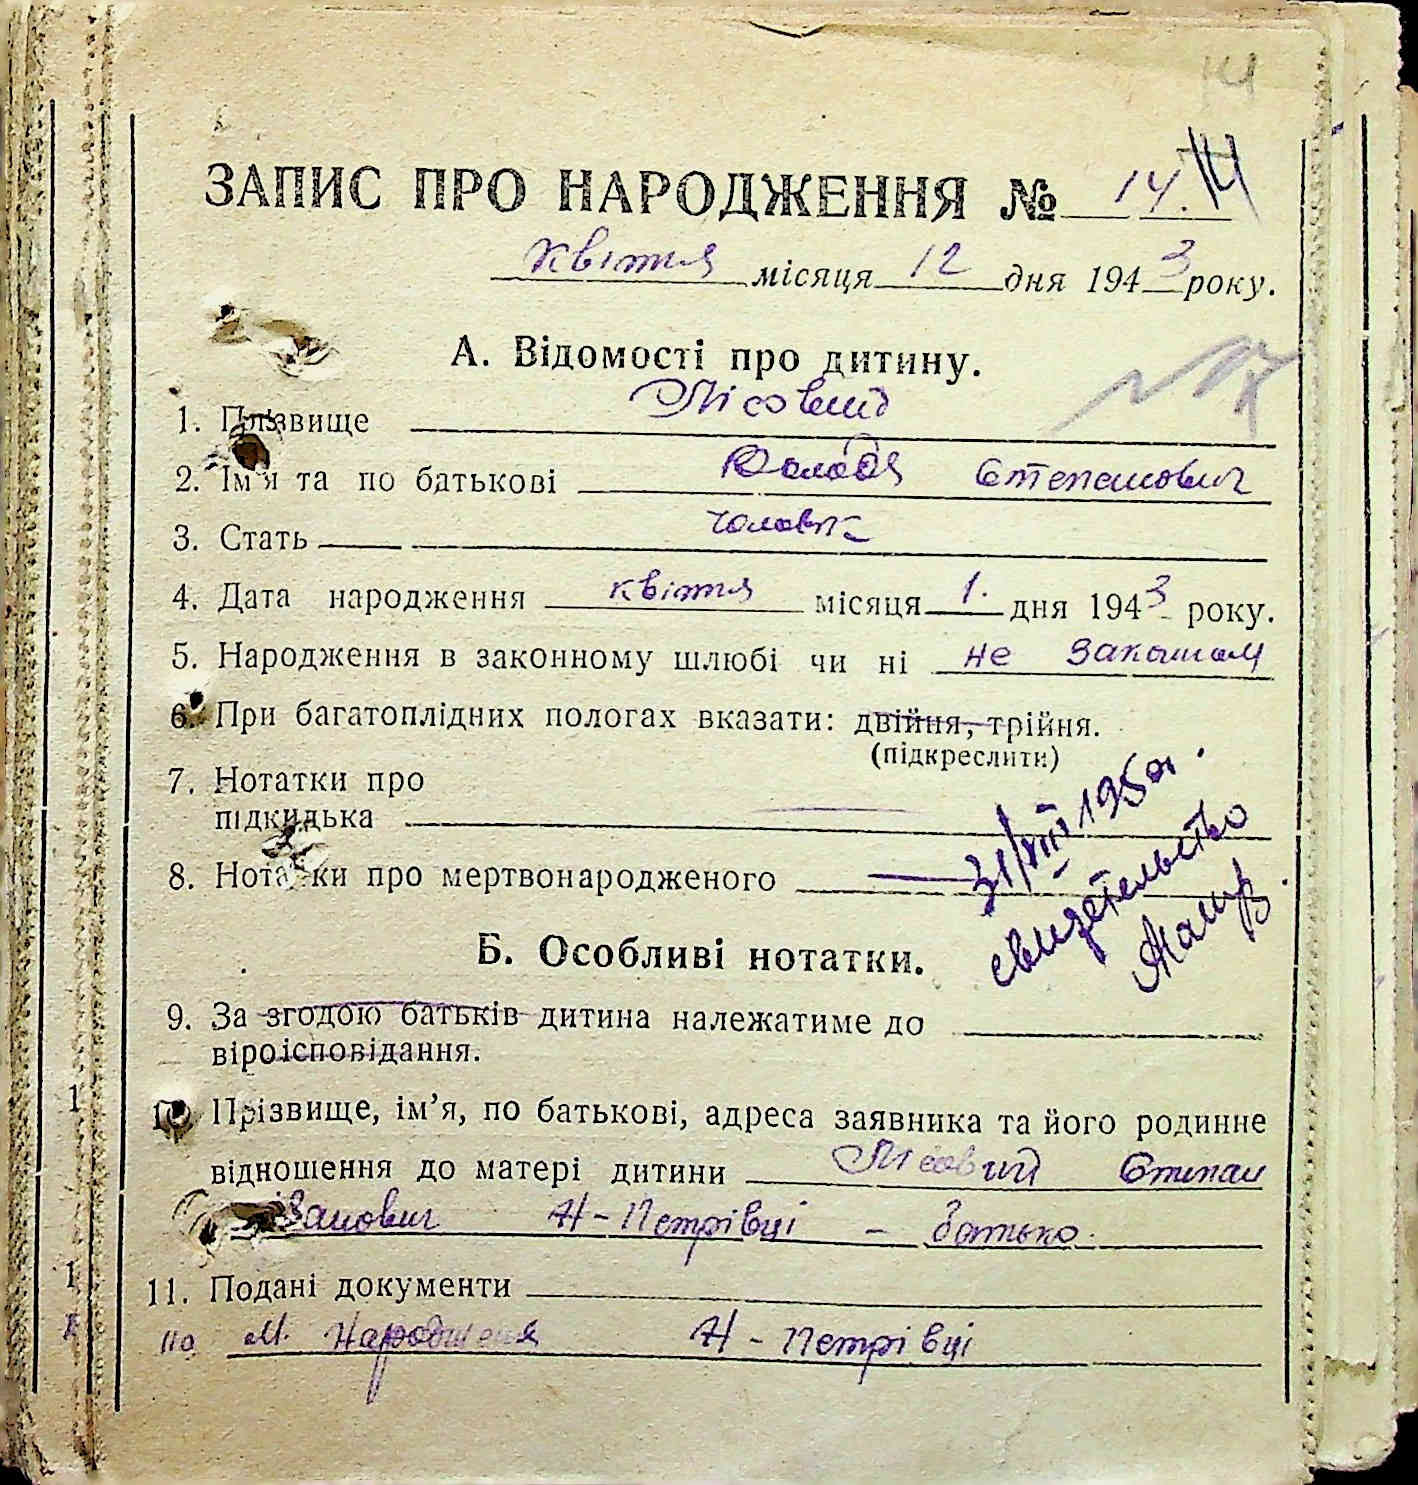 14
ЗАПИС ПРО НАРОДЖЕННЯ № 14. 14
квітня місяця 12 дня 1943 року.
А. Відомості про дитину.
1. Прізвище Лісовий
2. Ім'я та по батькові Володя Степанович
3. Стать чоловік
4. Дата народження квітня місяця 1. дня 1943 року.
5. Народження в законному шлюбі чи ні не законном
6. При багатоплідних пологах вказати: двійня, трійня.
(підкреслити)
7. Нотатки про
підкидька
8. Нотатки про мертвонародженого
31/VIII 1950г.
свидетельство
Б. Особливі нотатки.
9. За згодою батьків дитина належатиме до
віроісповідання.
10. Прізвище, ім'я, по батькові, адреса заявника та його родинне
відношення до матері дитини Лісовий Степан
Іванович Н-Петрівці - батько.
11. Подані документи
по м. Народженя Н-Петрівці